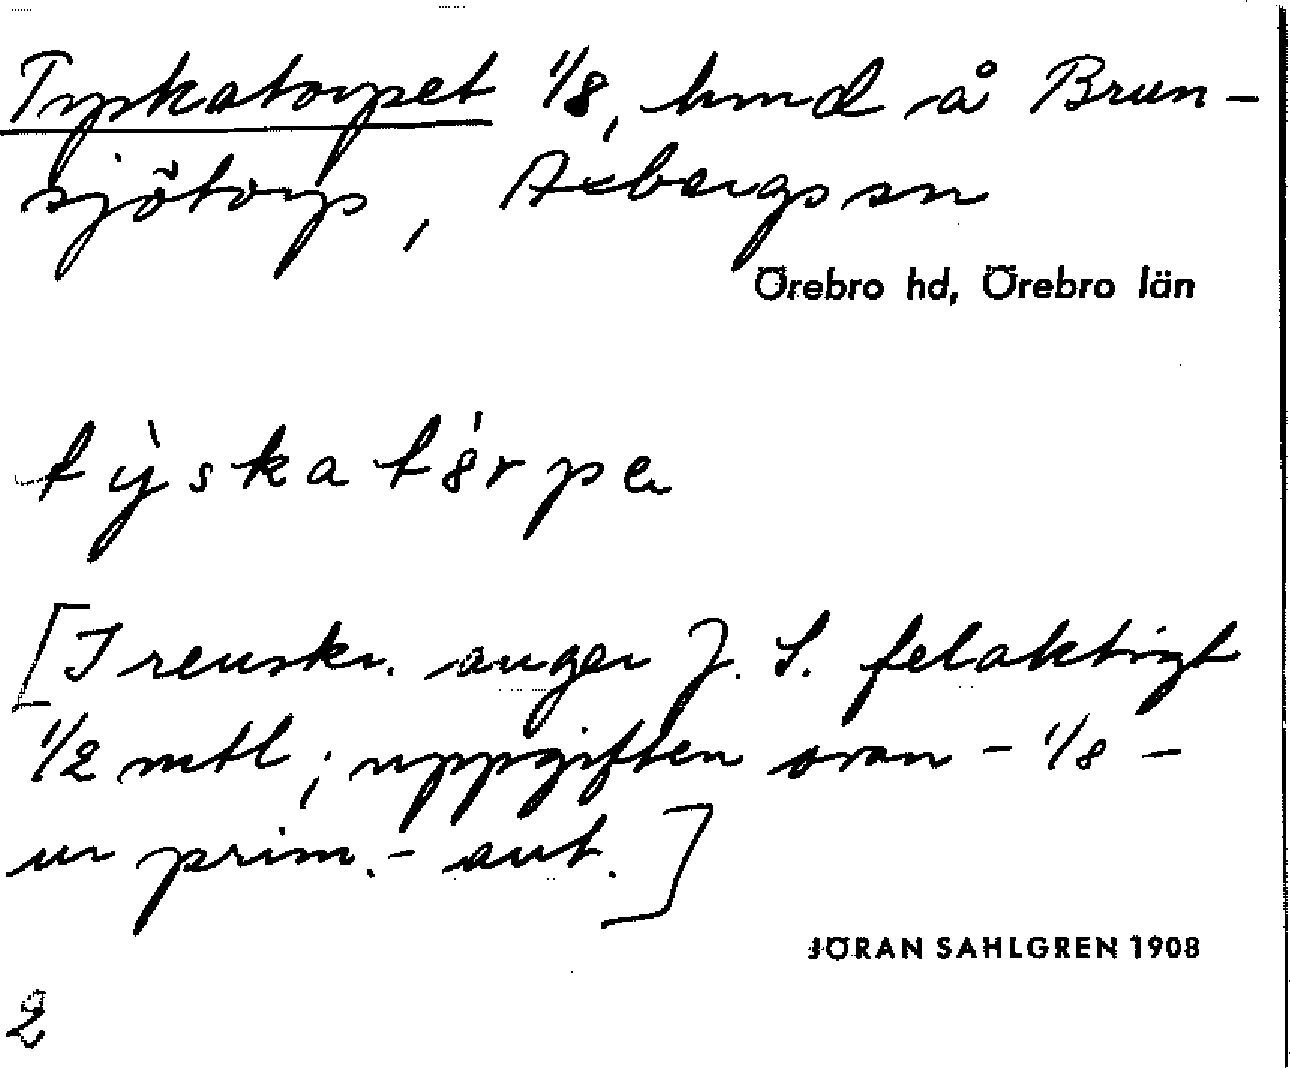 Tyskatorpet 1/8, hmd å Brun-
sjötorp, Axbergs sn
Örebro hd, Örebro län
tỳskatórpe
[I renskr. anger J. S. felaktigt
1/2 mtl; uppgiften ovan - 1/8 -
ur prim.- ant.]
JÖRAN SAHLGREN 1908
2